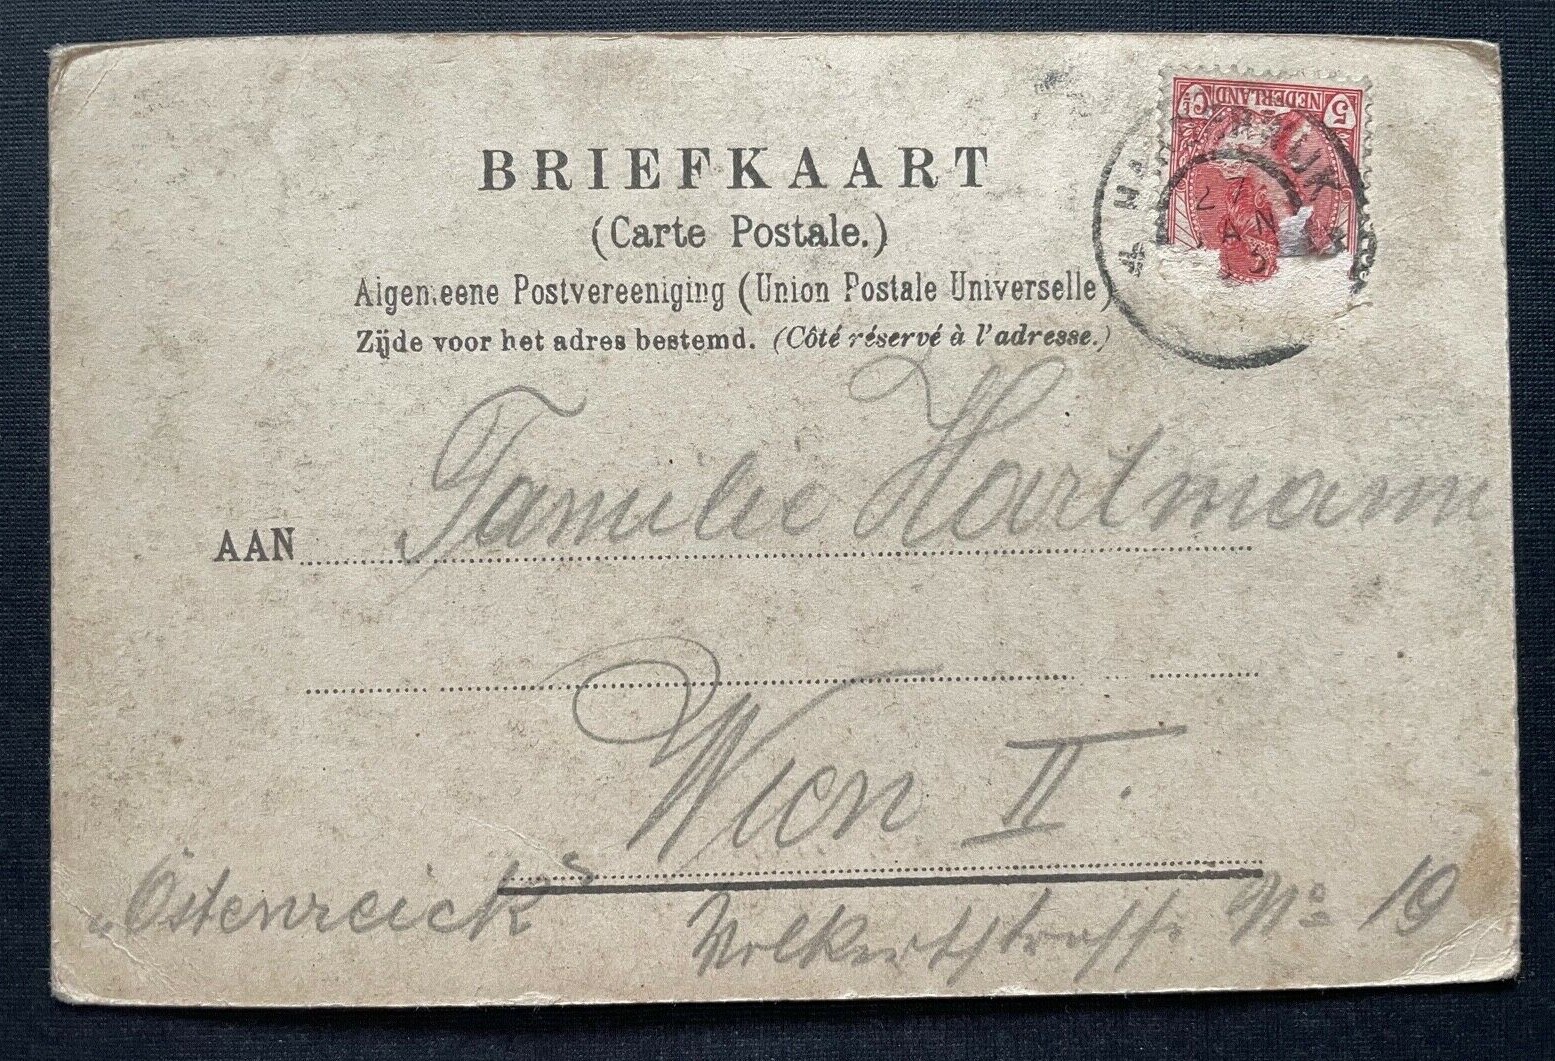 BRIEFKAART
(Carte Postale.)
Algemeene Postvereeniging (Union Postale Universelle)
Zijde voor het adres bestemd. (Côté réservé à l'adresse.)
5 NEDERLAND Ct
27
JAN
5
AAN Familie Hartmann
Wien II.
„Östenreich"
Volkertstrasse No 19